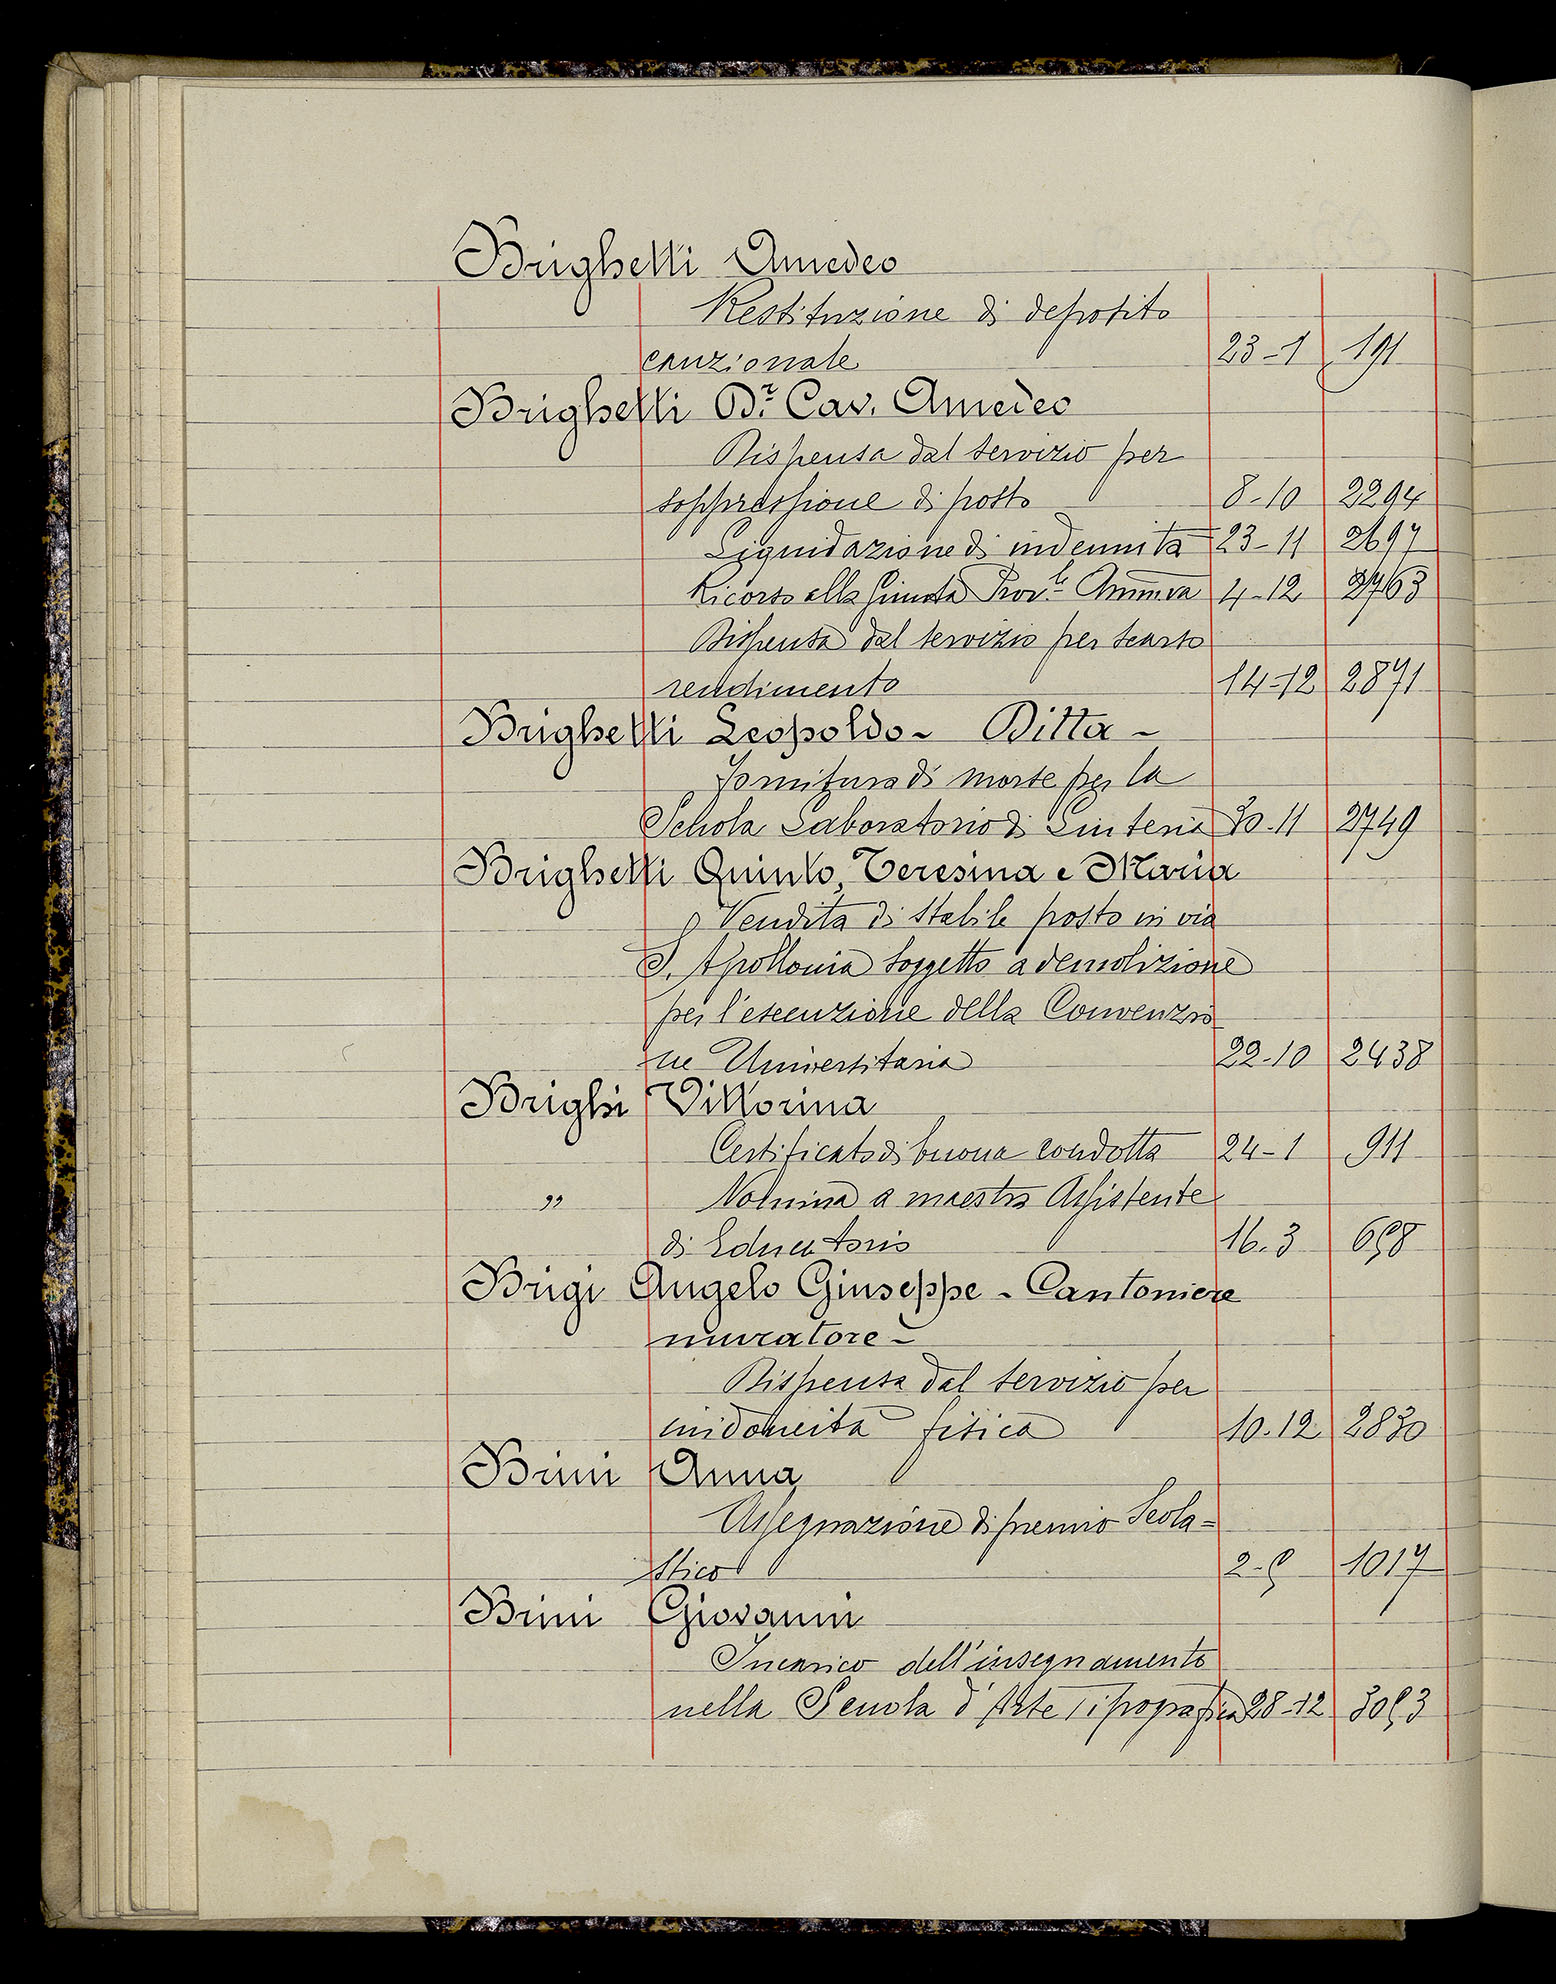 Brighetti Amedeo
Restituzione di deposito
cauzionale 23-1 191
Brighetti Dr. Cav. Amedeo
Dispensa dal servizio per
soppressione di posto 8-10 2294
Liquidazione di indennità 23-11 2697
Ricorso alla Giunta Prov.le Amm.va 4-12 2763
Dispensa dal servizio per scarso
rendimento 14-12 2871
Brighetti Leopoldo - Ditta -
Fornitura di morse per la
Schola Laboratorio di 30-11 2749
Brighetti Quinto, Teresina e Maria
Vendita di stabile posto in via
S. Apollonia soggetto a demolizione
per l'esecuzione della Convenzio
ne Universitaria 22-10 2438
Brighi Vittorina
Certificato di buona condotta 24-1 911
" Nomina a maestra Assistente
di Educatorio 16-3 658
Brigi Angelo Giuseppe - Cantoniere
muratore -
Dispensa dal servizio per
inidoneità fisica 10-12 2830
Brini Anna
Assegnazione di premio Scola=
stico 2-5 1017
Brini Giovanni
Incarico dell'insegnamento
nella Scuola d'Arte Tipografica 28-12 3053